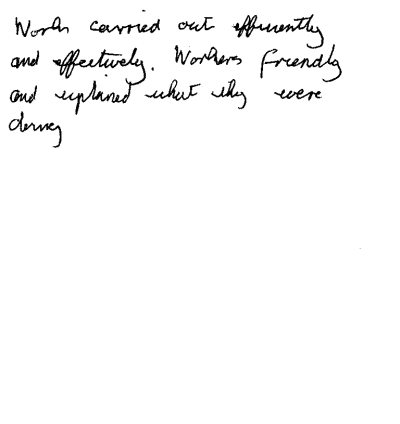 Work carried out efficiently
and effectively. Workers friendly
and explained what they were
doing